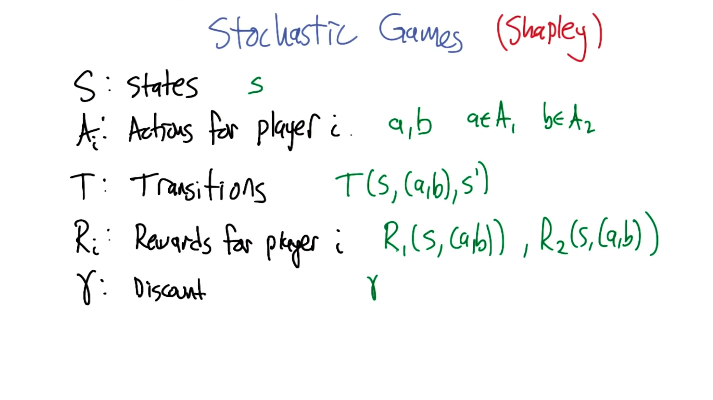 Stochastic Games (Shapley)
S: states s
Ai: Actions for player i. a,b a∈A1 b∈A2
T: Transitions T(s,(a,b),s')
Ri: Rewards for player i R1(s,(a,b)), R2(s,(a,b))
γ: Discount γ